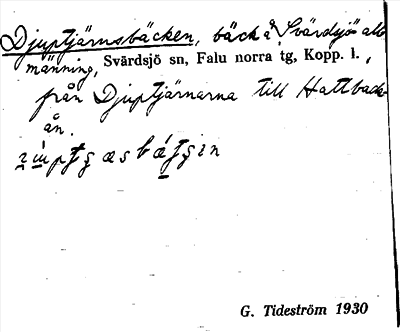 Djuptjärnsbäcken, bäck å Svärdsjö all-
männing, Svärdsjö sn, Falu norra tg, Kopp. l.,
från Djuptjärnarna till Hattback-
ån.
G. Tideström 1930